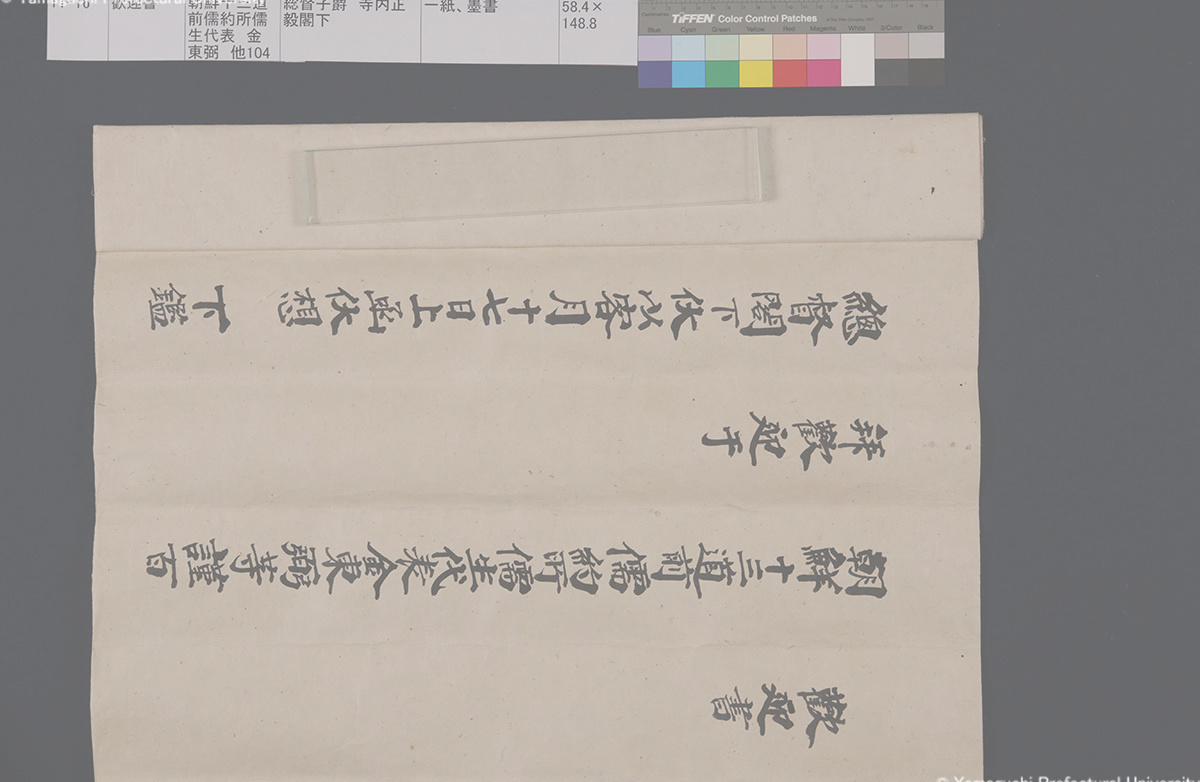 総督子爵 寺内正
毅閣下
一紙、墨書
58.4×
148.8
前儒約所儒
生代表 金
東弼 他104
TIFFEN Color Control Patches
Blue Cyan Green Yellow Red Magenta White 3/Color Black
歡迎書
朝鮮十三道前儒約所儒生代表金東弼等謹百
拜歡迎于
總督閣下伏以客月十七日上函伏想
下鑑